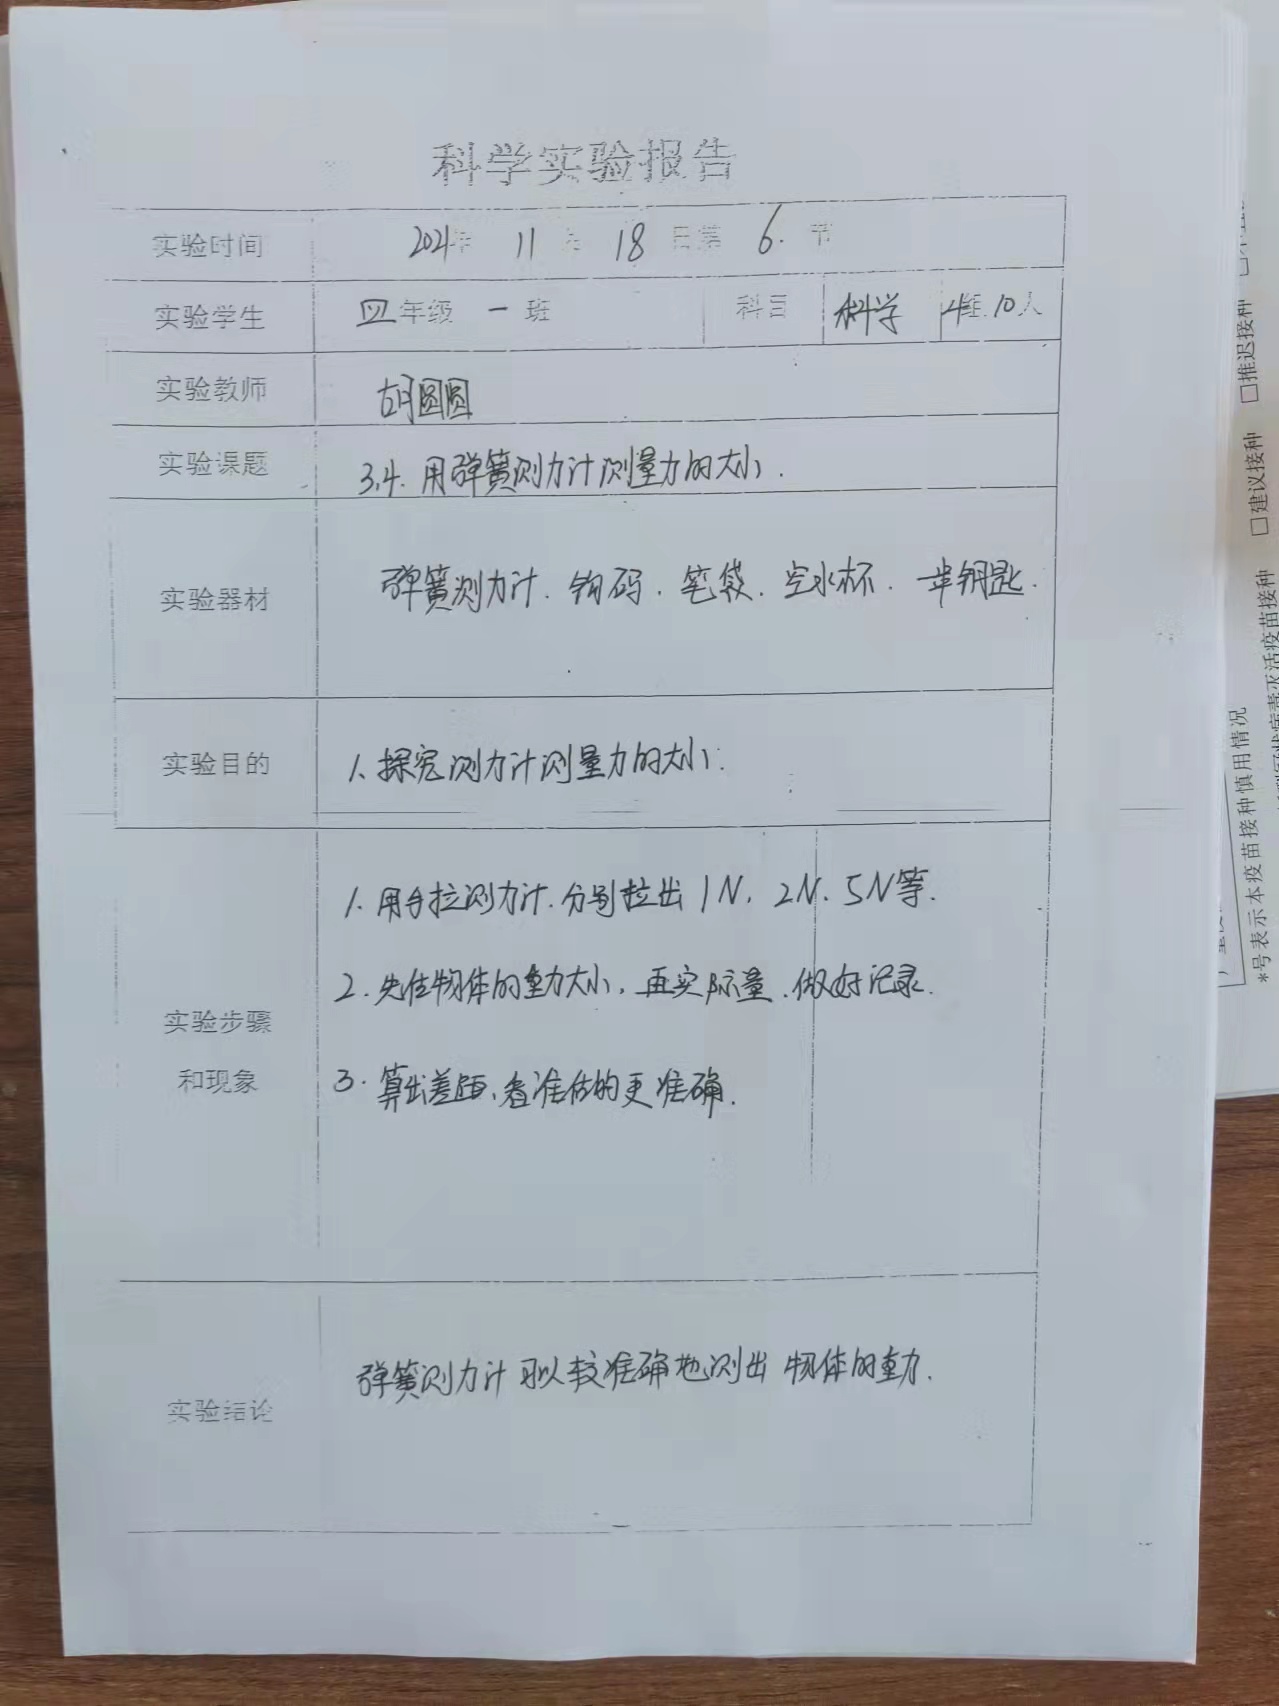 科学实验报告
实验时间 2021年 11月 18日第 6. 节
实验学生 四年级 一班 科目 科学 4组.10人
实验教师 胡圆圆
实验课题 3.4. 用弹簧测力计测量力的大小.
实验器材 弹簧测力计. 钩码. 笔袋. 空水杯. 一串钥匙.
实验目的 1. 探究测力计测量力的大小.
实验步骤和现象
1. 用手拉测力计.分别拉出 1N. 2N. 5N等.
2. 先估物体的重力大小, 再实际量.做好记录.
3. 算出差距、看谁估的更准确.
实验结论 弹簧测力计可以较准确地测出物体的重力.
□推迟接种
□建议接种
*号表示本疫苗接种慎用情况